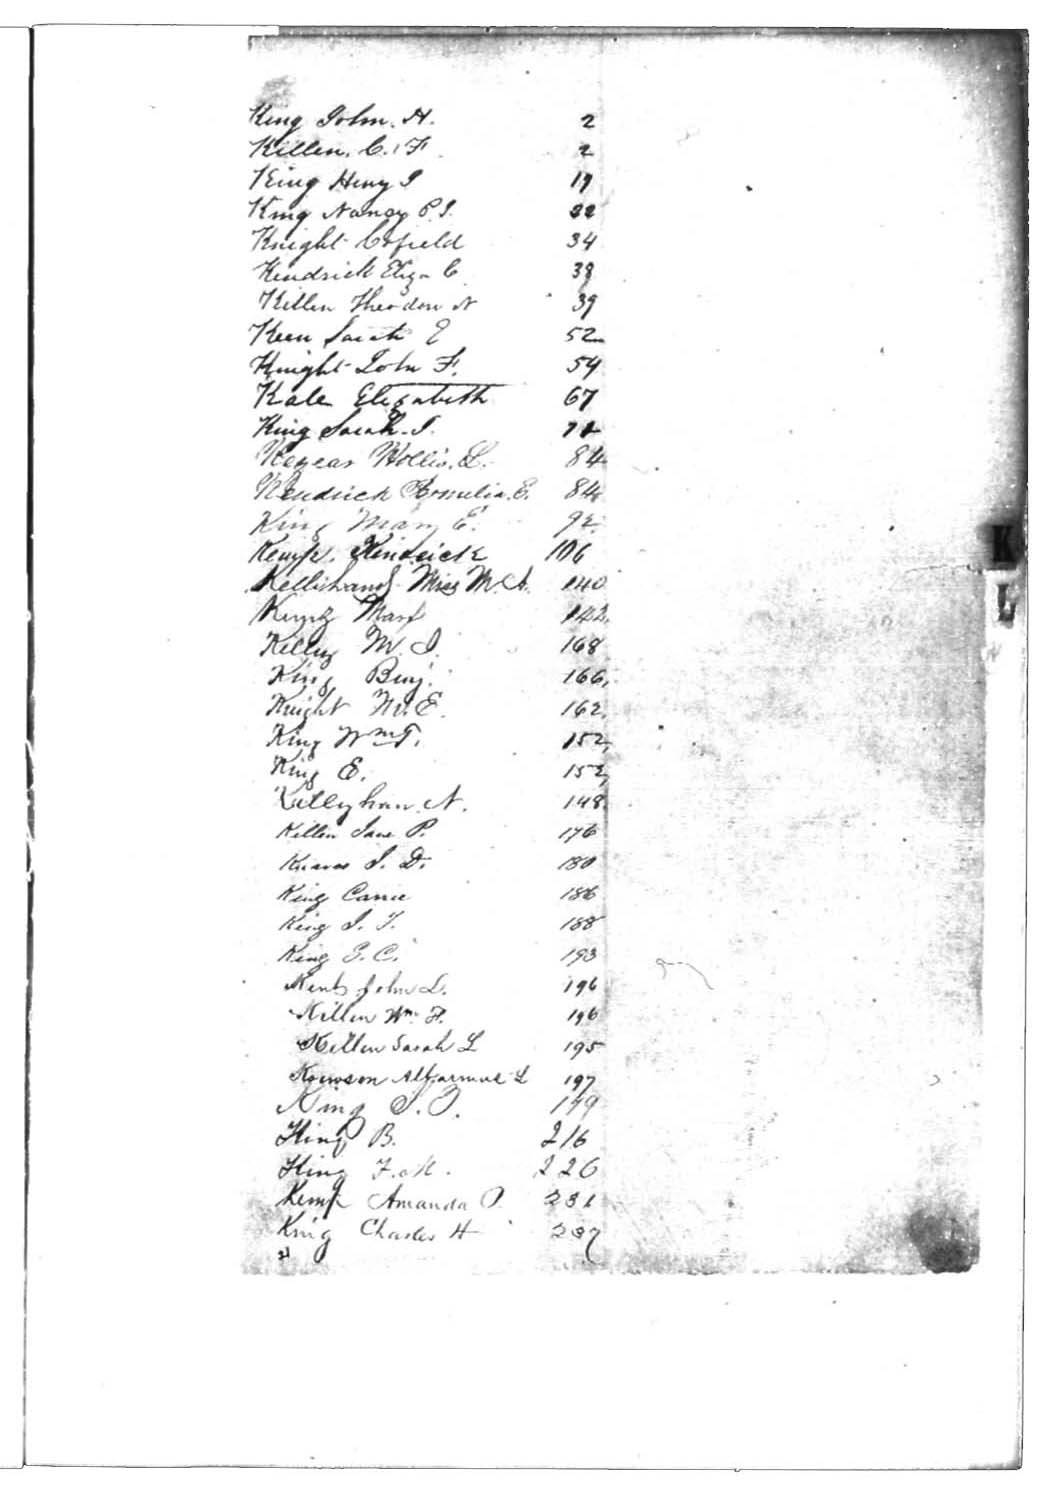 King John. H. 2
Killen. C. F. 2
King Henry J 19
King Nancy P. J. 32
Knight Cofield 34
Kendrick Eliza C 38
Killen Theodore N 39
Keen Sarah E 52
Knight John F. 54
Kale Elizabeth 67
King Sarah. J.
Hollis. L. 84
Kendrick Cornelia. E. 84
King Mary E. 92
Kemp. Kindrick 106
Miss M. A. 140
Mary 142.
Killey M. J. 168
King Benj. 166,
Knight M. E. 162.
King Wm T. 152,
King E. 152,
Killyhan. N. 148.
Killen Jane P. 176
J. D. 180
King Carrie 186
King J. T. 188
King G. C. 193
Kent John L. 196
Killen Wm F. 196
Killen Sarah L 195
L 197
King J. O. 199
King B. 216
King F. M. 226
Kemp Amanda P. 231
King Charles H 237
K
L